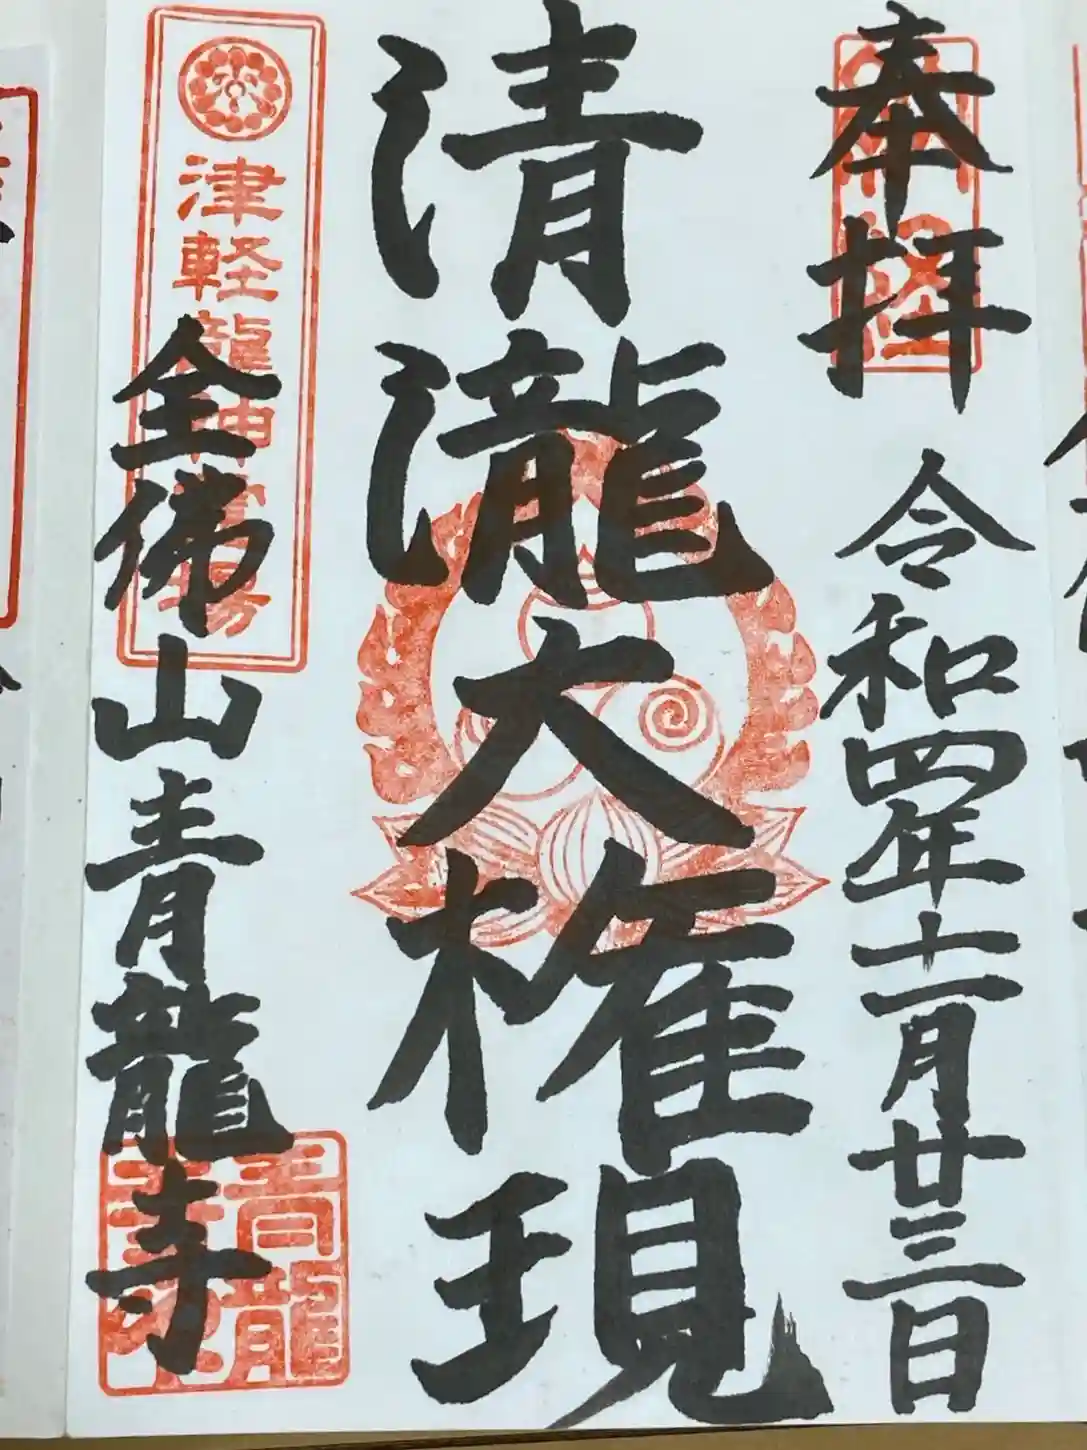 奉拝
令和四年十一月廿三日
清瀧大権現
津軽龍神霊場
全佛山青龍寺